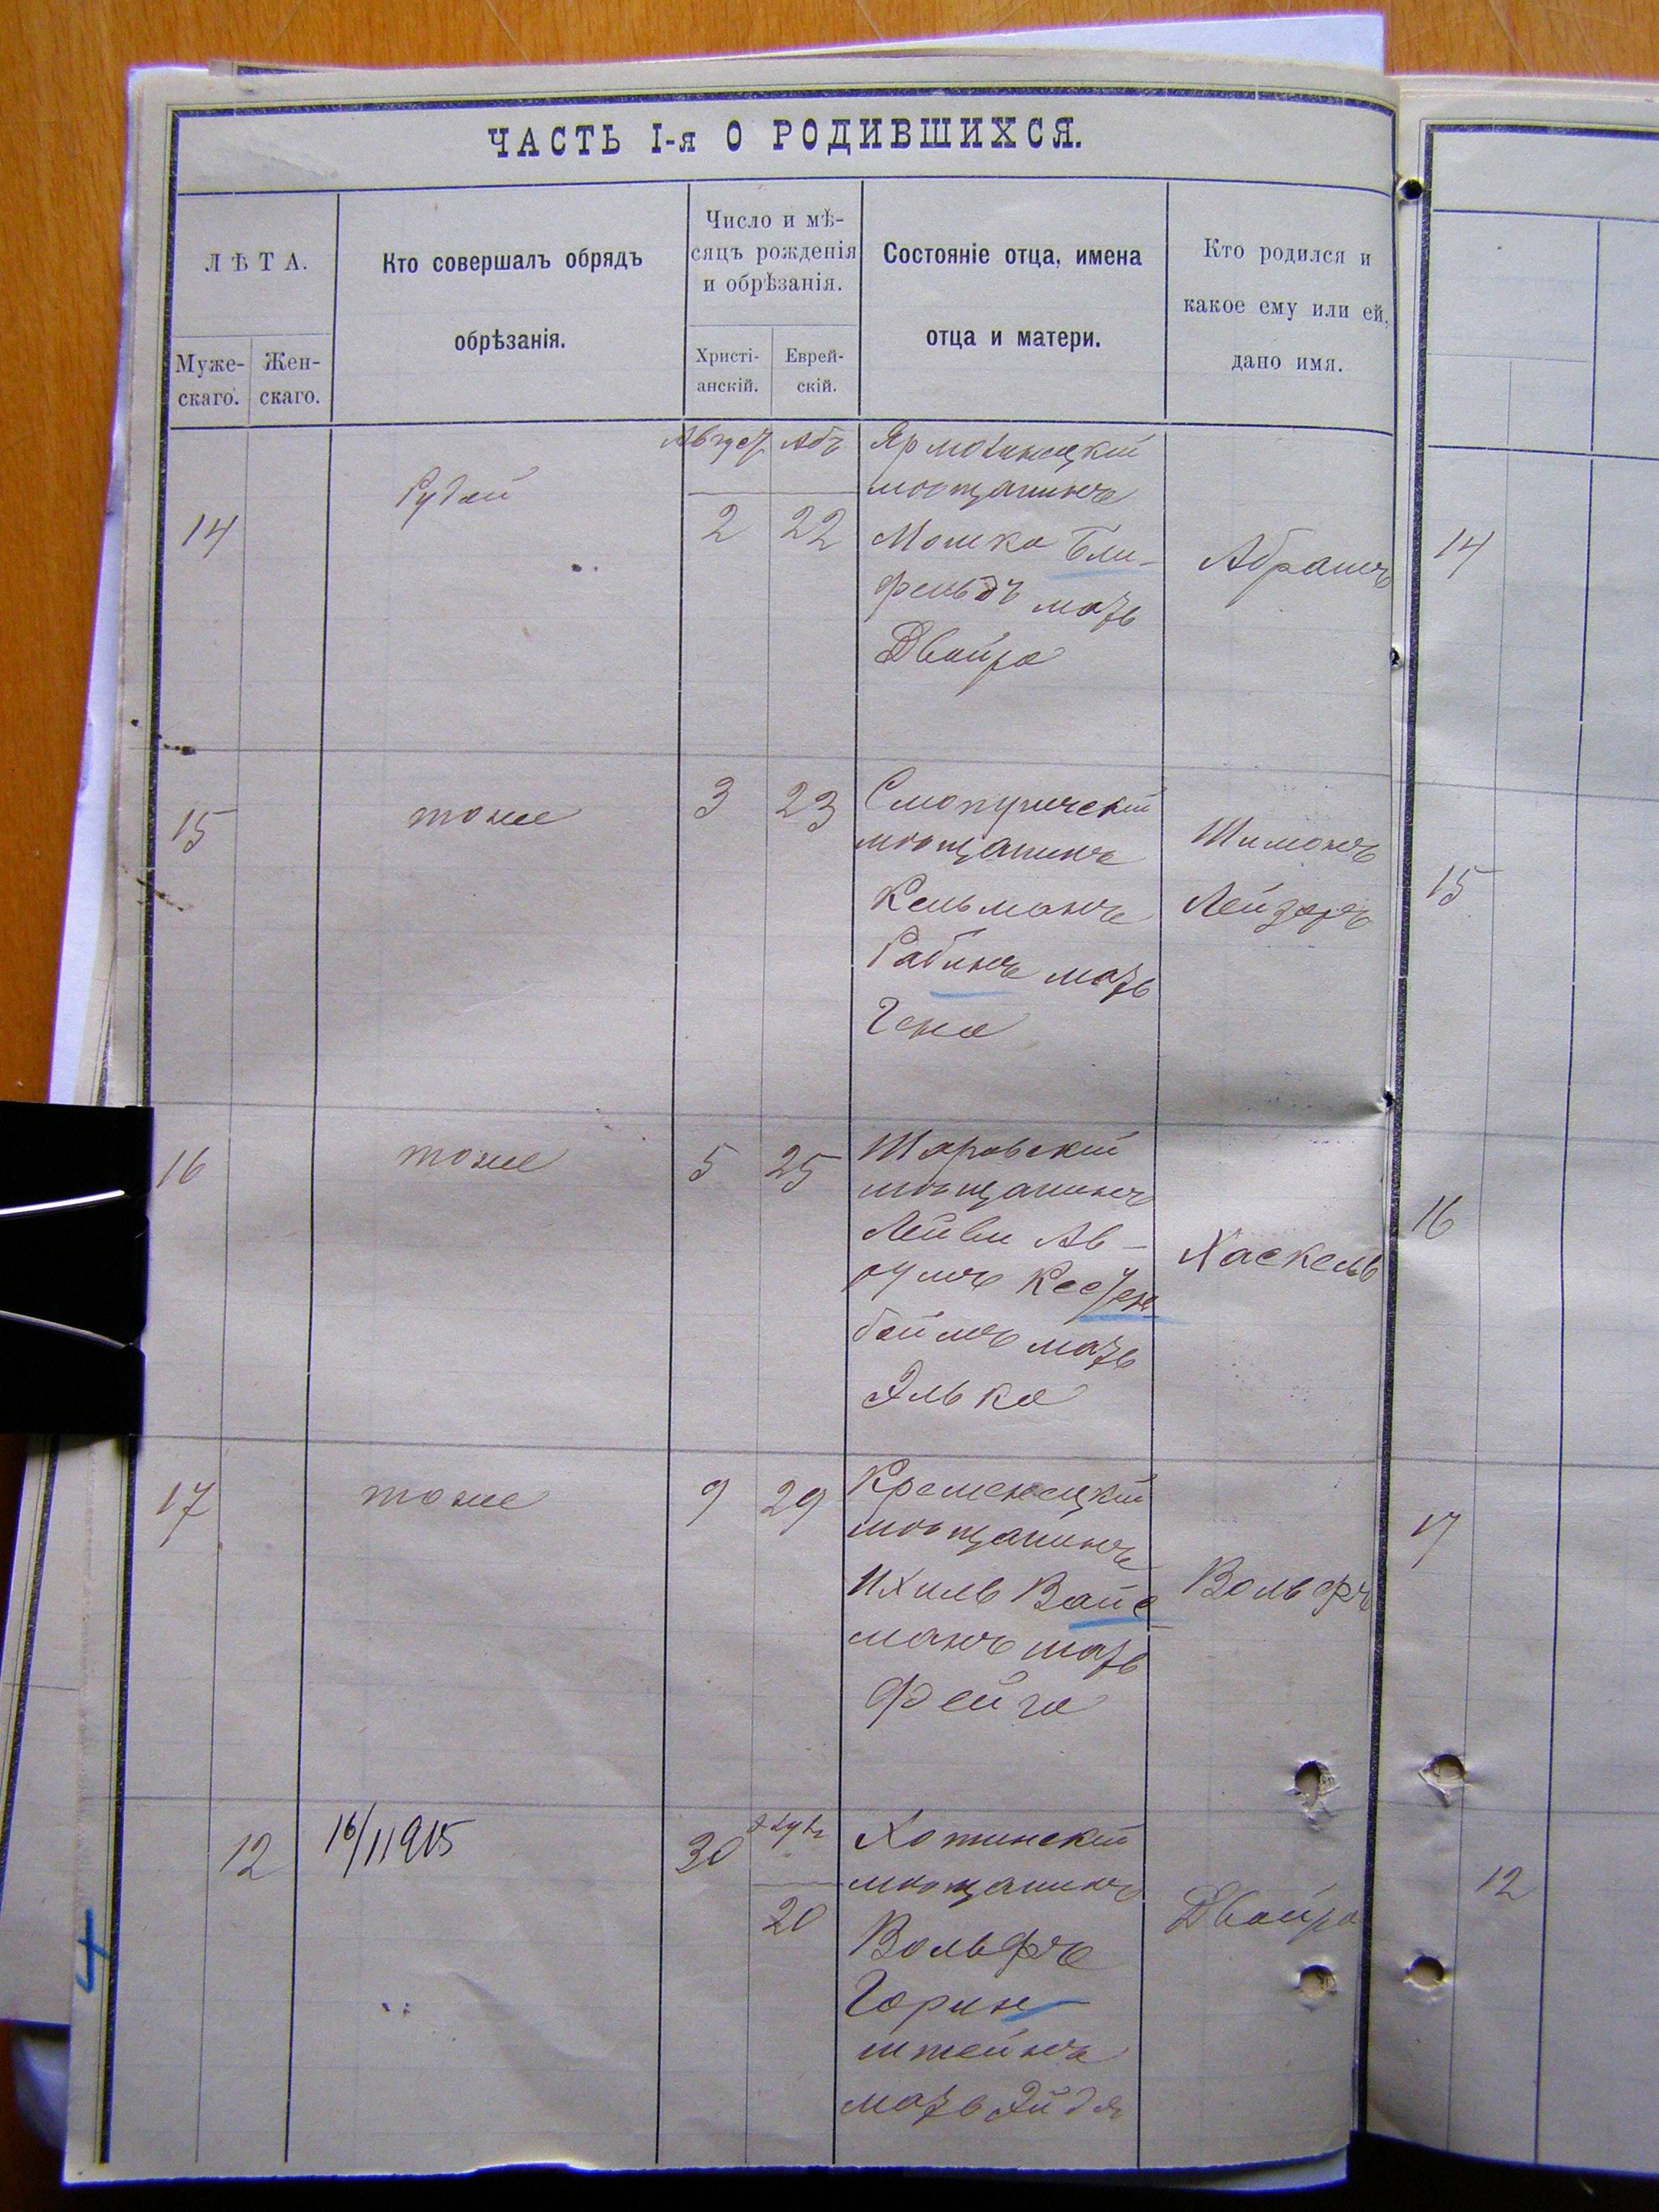 ЧАСТЬ I-я О РОДИВШИХСЯ.
ЛѢТА.
Муже-
скаго.
Жен-
скаго.
Кто совершалъ обрядъ
обрѣзанія.
Число и мѣ-
сяцъ рожденія
и обрѣзанія.
Христі-
анскій.
Еврей-
скій.
Состояніе отца, имена
отца и матери.
Кто родился и
какое ему или ей,
дано имя.
14
Рудой
Август
2
Абъ
22
мѣщанинъ
Мошко Бли-
фельдъ мать
Двойра
Абрамъ
14
15
тоже
3
23
Смотричскій
мѣщанинъ
Кельманъ
Рабинъ мать
Гена
Шимонъ
Лейзоръ
15
16
тоже
5
25
Шаровскій
мѣщанинъ
Лейви Ав-
румъ Кестен-
боймъ мать
Элька
Хаскель
16
17
тоже
9
29
Кременецкій
мѣщанинъ
Ихиль Вайс-
манъ мать
Фейга
Вольфъ
17
12
16/11915
30
20
Хотинскій
мѣщанинъ
Вольфъ
Горин-
штейнъ
мать Эйдя
Двойра
12
4